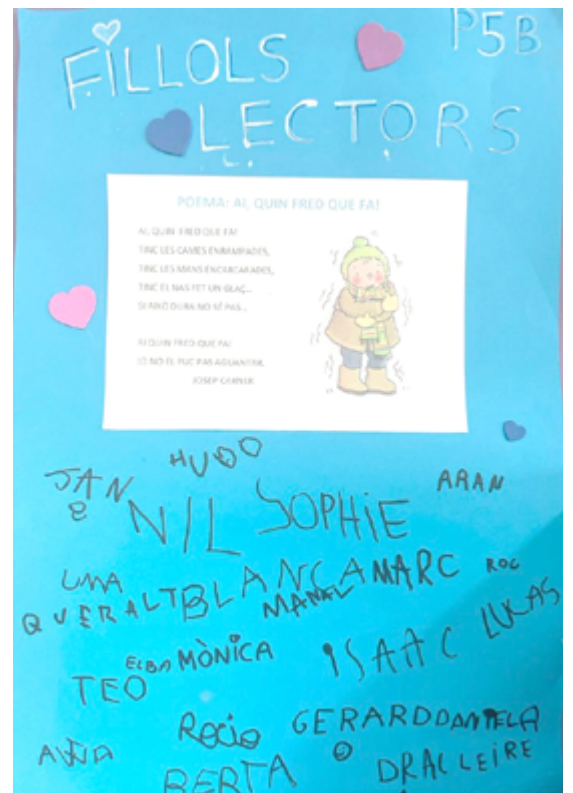 P5B
FILLOLS
LECTORS
POEMA: AI, QUIN FRED QUE FA!
AI, QUIN FRED QUE FA!
TINC LES CAMES ENRAMPADES,
TINC LES MANS ENCARCARADES,
TINC EL NAS FET UN GLAÇ...
SI AIXÒ DURA NO SÉ PAS...
AI QUIN FRED QUE FA!
JO NO EL PUC PAS AGUANTAR.
JOSEP CARNER
HUGO
JAN
ARAN
NIL SOPHIE
UMA BLANCA MARC ROC
QUERALT MANEL LUKAS
ELBA MÒNICA ISAAC
TEO
ROCIO GERARD DANIELA
BERTA DRAC LEIRE